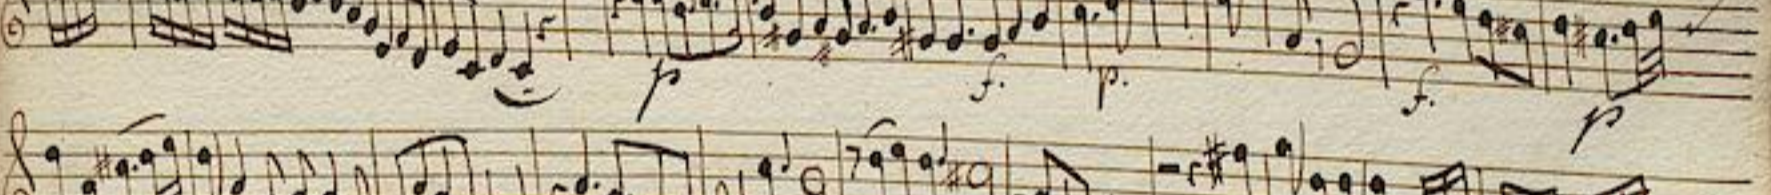 p f. p. f. p